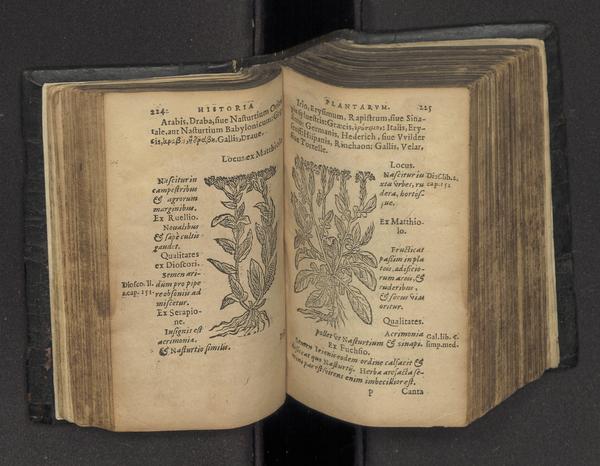 224 HISTORIA
Arabis, Draba, siue Nasturtium Orien
tale, aut Nasturtium Babylonicum: Græ
cis, ἄραβις, ἢ δράβη. Gallis, Draue.
Locus ex Matthiolo
Nascitur in
campestribus
& agrorum
marginibus.
Ex Ruellio.
Noualibus
& sæpè cultis
gaudet.
Qualitates
ex Dioscori.
Semen ari-
Diosco. li. dum pro pipe
2. cap. 151. re obsoniis ad
miscetur.
Ex Serapio-
ne.
Insignis est
acrimonia,
& Nasturtio similis.
PLANTARVM. 225
Irio, Erysimum, Rapistrum, siue Sina-
siluestris: Græcis, ἐρύσιμον: Italis, Ery-
Germanis, Hederich, siue Vvilder
Hispanis, Rinchaon: Gallis, Velar,
siue Tortelle.
Locus.
Nascitur iu Dios. lib. 2.
xta vrbes, ru cap. 152
dera, hortos-
que.
Ex Matthio-
lo.
Fructicat
passim in pla
teis, ædificio-
rum areis, &
ruderibus,
& secus vias
oritur.
Qualitates.
Acrimonia Gal. lib. 6.
pollet vt Nasturtium & sinapi. simp. med.
Ex Fuchsio.
Semen Irionis eodem ordine calfacit &
siccat quo Nasturtij. Herba arefacta se-
par est: virens enim imbecilior est.
P Canta